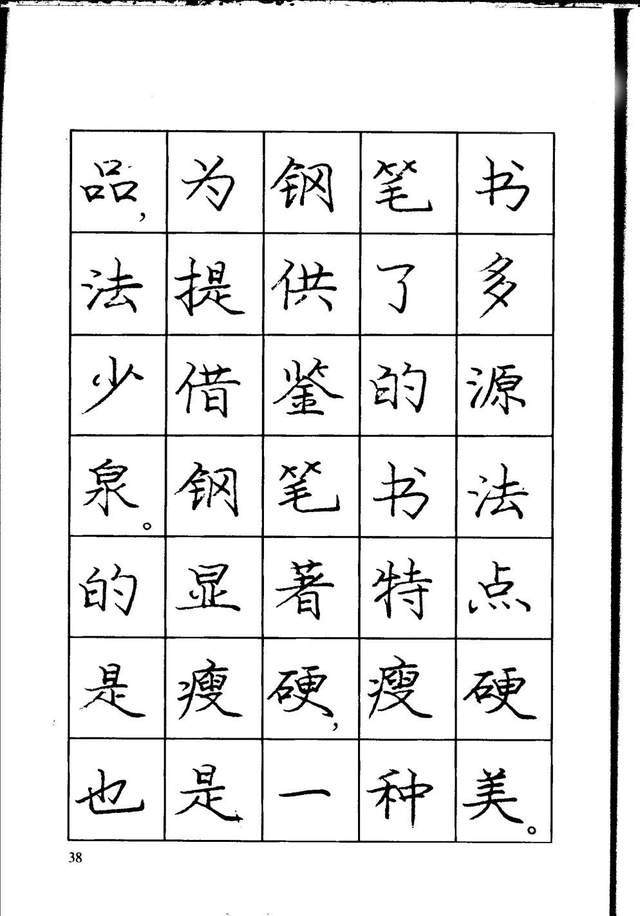 品，为钢笔书
法提供了多
少借鉴的源
泉。钢笔书法
的显著特点
是瘦硬，瘦硬
也是一种美。
38